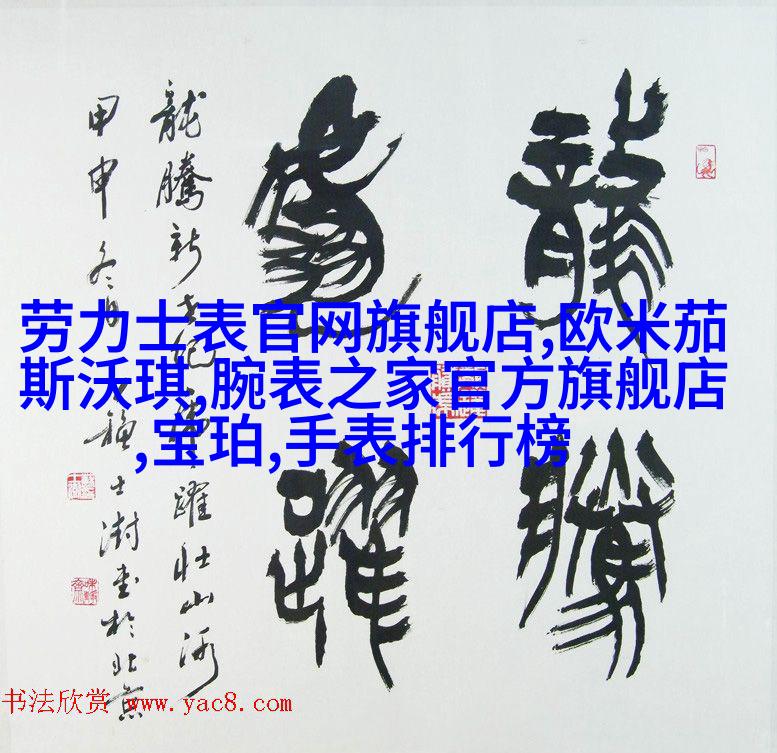 龍騰
虎躍
龍騰新世紀虎躍壮山河
甲申冬月
士澍書於北京
劳力士表官网旗舰店,欧米茄
斯沃琪,腕表之家官方旗舰店
,宝珀,手表排行榜
书法欣赏 www.yac8.com